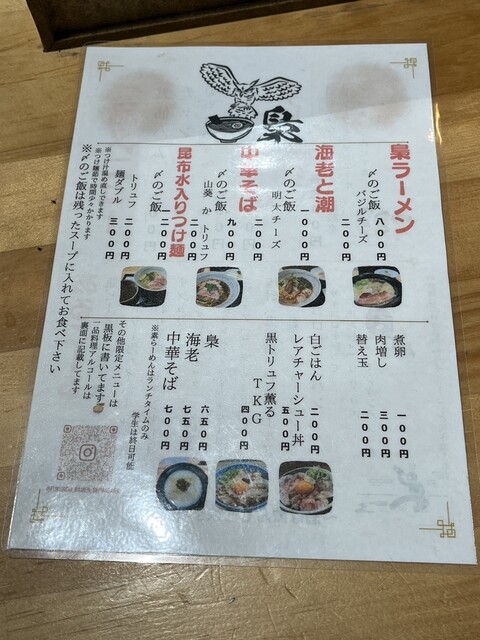 梟
梟ラーメン
八〇〇円
〆のご飯
バジルチーズ
二〇〇円
海老と潮
一〇〇〇円
〆のご飯
明太チーズ
二〇〇円
中華そば
九〇〇円
〆のご飯
山葵 か トリュフ
二〇〇円
昆布水入りつけ麺
〆のご飯
トリュフ
二〇〇円
麺ダブル
三〇〇円
※つけ汁温め直しできます
※つけ麺茹で時間少々かかります
※〆のご飯は残ったスープに入れてお食べ下さい
煮卵
一〇〇円
肉増し
三〇〇円
替え玉
二〇〇円
白ごはん
二〇〇円
レアチャーシュー丼
五〇〇円
黒トリュフ薫る
TKG
四〇〇円
梟
六五〇円
海老
七五〇円
中華そば
七〇〇円
※素らーめんはランチタイムのみ
学生は終日可能
その他限定メニューは
黒板に書いてます
一品料理アルコールは
裏面に記載してます